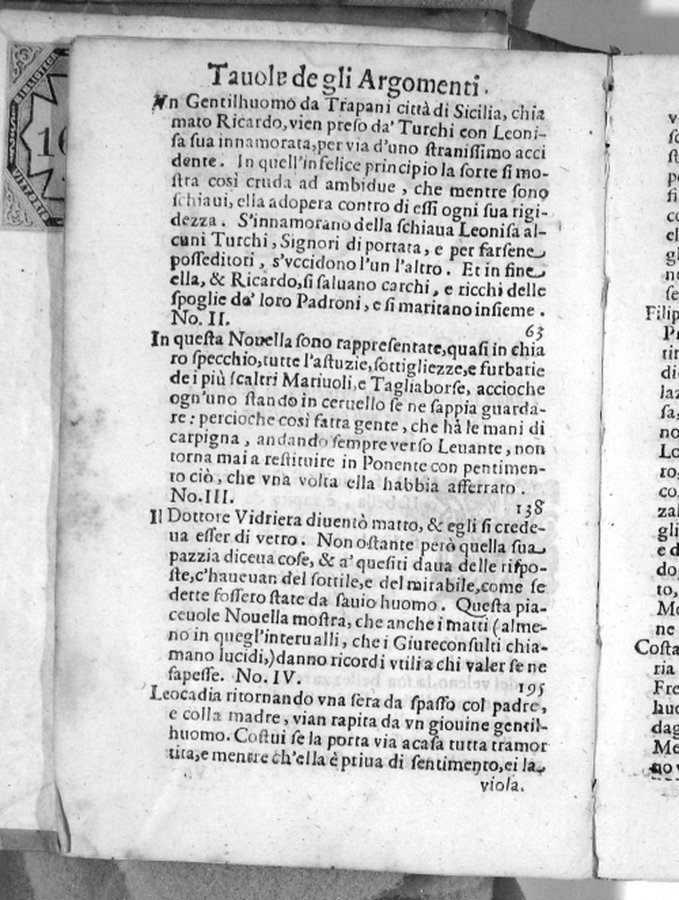 Tauola de gli Argomenti.
Vn Gentilhuomo da Trapani città di Sicilia, chia
mato Ricardo, vien preso da' Turchi con Leoni-
sa sua innamorata, per via d'vno stranissimo acci
dente. In quell'infelice principio la sorte si mo-
stra così cruda ad ambidue, che mentre sono
schiaui, ella adopera contro di essi ogni sua rigi-
dezza. S'innamorano della schiaua Leonisa al-
cuni Turchi, Signori di portata, e per farsene
posseditori, s'vccidono l'un l'altro. Et in fine
ella, & Ricardo, si saluano carchi, e ricchi delle
spoglie de' loro Padroni, e si maritano insieme.
No. II. 63
In questa Nouella sono rappresentate, quasi in chia
ro specchio, tutte l'astuzie, sottigliezze, e furbarie
de i più scaltri Mariuoli, e Tagliaborse, accioche
ogn'uno stando in ceruello se ne sappia guarda-
re: percioche così fatta gente, che hà le mani di
carpigna, andando sempre verso Leuante, non
torna mai a restituire in Ponente con pentimen-
to ciò, che vna volta ella habbia afferrato.
No. III. 138
Il Dottore Vidriera diuentò matto, & egli si crede-
ua esser di vetro. Non ostante però quella sua
pazzia diceua cose, & a' quesiti daua delle rispo-
ste, c'haueuan del sottile, e del mirabile, come se
dette fossero state da sauio huomo. Questa pia-
ceuole Nouella mostra, che anche i matti (alme-
no in quegl'interualli, che i Giureconsulti chia-
mano lucidi,) danno ricordi vtili a chi valer se ne
sapesse. No. IV. 195
Leocadia ritornando vna sera da spasso col padre,
e colla madre, vian rapita da vn giouine gentil-
huomo. Costui se la porta via a casa tutta tramor
tita, e mentre ch'ella è priua di sentimento, ei la
viola.